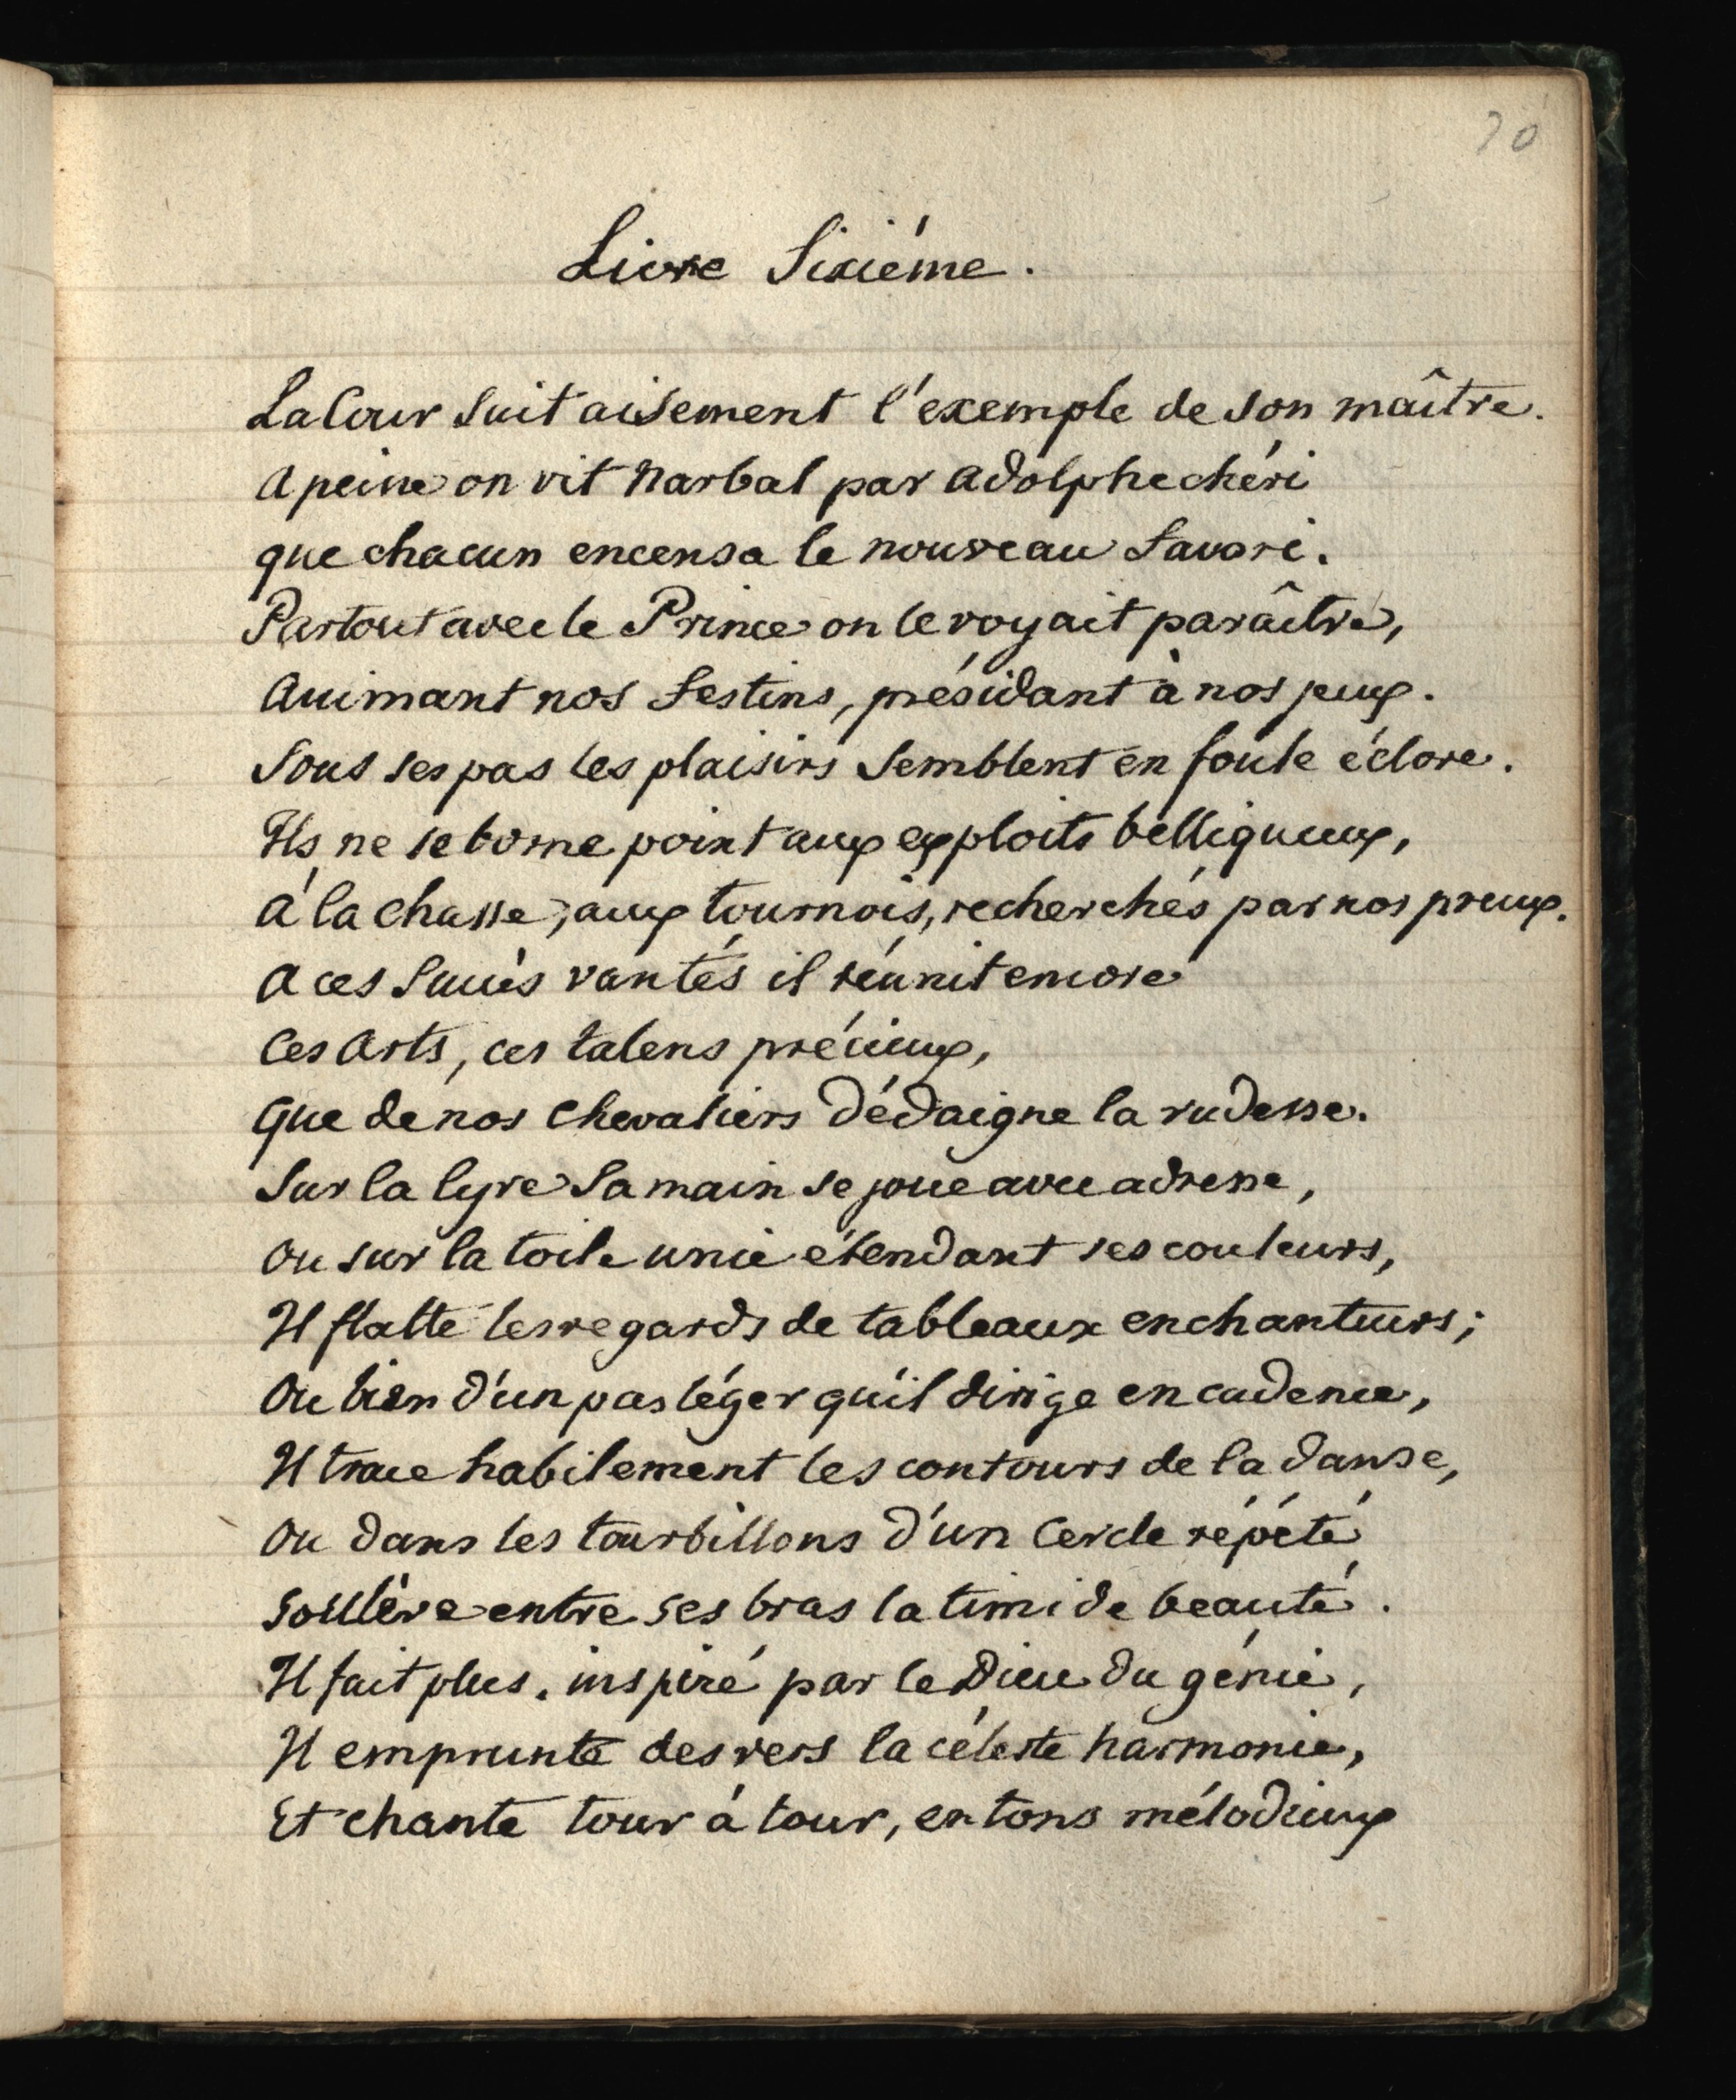 70
Livre Sixiéme.
La Cour suit aisement l'exemple de son maître.
A peine on vit Narbal par Adolphe chéri
que chacun encensa le nouveau favori.
Partout avec le Prince on le voyait paraître,
Animant nos festins, présidant à nos jeux.
Sous ses pas les plaisirs semblent en foule éclore.
Ils ne se borne point aux exploits belliqueux,
à la chasse, aux tournois, recherchés par nos preux.
A ces succès vantés il réunit encore
Ces Arts, ces talens précieux,
Que de nos Chevaliers dédaigne la rudesse.
Sur la lyre sa main se joue avec adresse,
Ou sur la toile unie étendant ses couleurs,
Il flatte les regards de tableaux enchanteurs;
Ou bien d'un pas léger qu'il dirige en cadence,
Il trace habilement les contours de la danse,
Ou dans les tourbillons d'un Cercle répété
soulève entre ses bras la timide beauté.
Il fait plus. inspiré par le Dieu du génie,
Il emprunte des vers la céleste harmonie,
Et chante tour à tour, en tons mélodieux